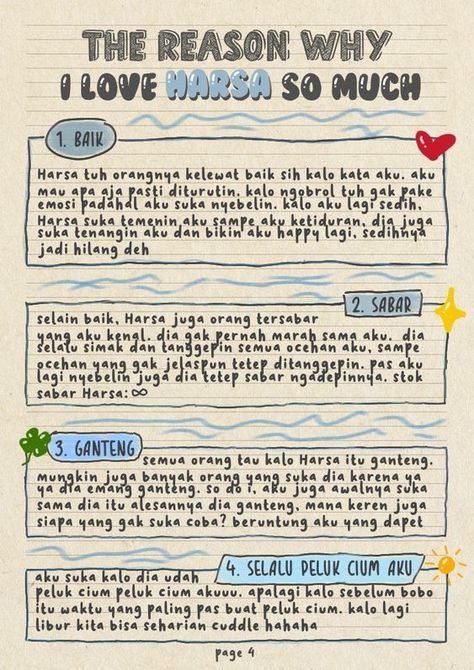 THE REASON WHY
I LOVE HARSA SO MUCH
1. BAIK
Harsa tuh orangnya kelewat baik sih kalo kata aku. aku
mau apa aja pasti diturutin. kalo ngobrol tuh gak pake
emosi padahal aku suka nyebelin. kalo aku lagi sedih,
Harsa suka temenin aku sampe aku ketiduran, dia juga
suka tenangin aku dan bikin aku happy lagi, sedihnya
jadi hilang deh
2. SABAR
selain baik, Harsa juga orang tersabar
yang aku kenal. dia gak pernah marah sama aku. dia
selalu simak dan tanggepin semua ocehan aku, sampe
ocehan yang gak jelaspun tetep ditanggepin. pas aku
lagi nyebelin juga dia tetep sabar ngadepinnya. stok
sabar Harsa: ∞
3. GANTENG
semua orang tau kalo Harsa itu ganteng.
mungkin juga banyak orang yang suka dia karena ya
ya dia emang ganteng. so do i, aku juga awalnya suka
sama dia itu alesannya dia ganteng, mana keren juga
siapa yang gak suka coba? beruntung aku yang dapet
4. SELALU PELUK CIUM AKU
aku suka kalo dia udah
peluk cium peluk cium akuuu. apalagi kalo sebelum bobo
itu waktu yang paling pas buat peluk cium. kalo lagi
libur kita bisa seharian cuddle hahaha
page 4